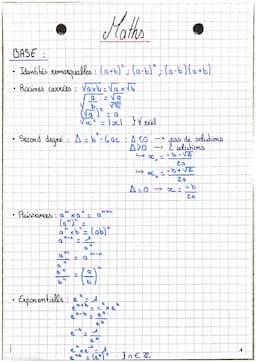 Maths
BASE :
• Identités remarquables : (a+b)² ; (a-b)² ; (a-b)(a+b)
• Racines carrées : √a×b = √a × √b
√a/b = √a/√b
(√a)² = a
√x² = |x| } ∀ réel
• Second degré : Δ = b² - 4ac : Δ<0 → pas de solutions
Δ>0 → 2 solutions
↳ x₁ = -b-√Δ/2a
↳ x₂ = -b+√Δ/2a
Δ=0 → x = -b/2a
• Puissances : aᵐ × aⁿ = aᵐ⁺ⁿ
aⁿ × bⁿ = (ab)ⁿ
aᵐ/aⁿ = aᵐ⁻ⁿ
aⁿ/bⁿ = (a/b)ⁿ
• Exponentielle : e⁰ = 1
eᵃ⁺ᵇ = eᵃ × eᵇ
} n ∈ ℤ
1